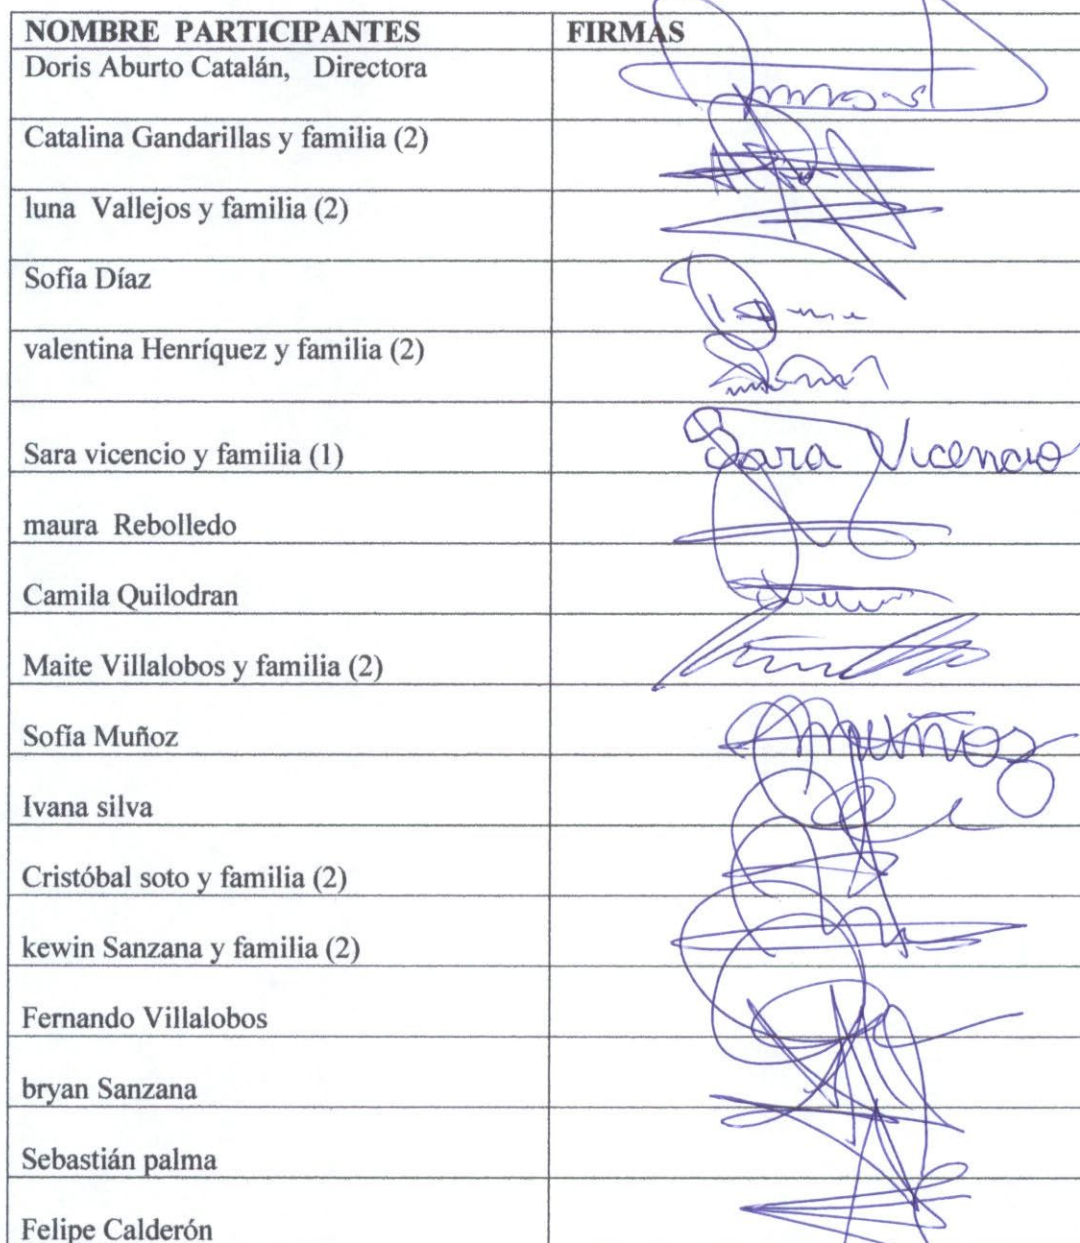 NOMBRE PARTICIPANTES FIRMAS
Doris Aburto Catalán, Directora
Catalina Gandarillas y familia (2)
luna Vallejos y familia (2)
Sofía Díaz
valentina Henríquez y familia (2)
Sara vicencio y familia (1) Sara Vicencio
maura Rebolledo
Camila Quilodran
Maite Villalobos y familia (2)
Sofía Muñoz Muñoz
Ivana silva
Cristóbal soto y familia (2)
kewin Sanzana y familia (2)
Fernando Villalobos
bryan Sanzana
Sebastián palma
Felipe Calderón